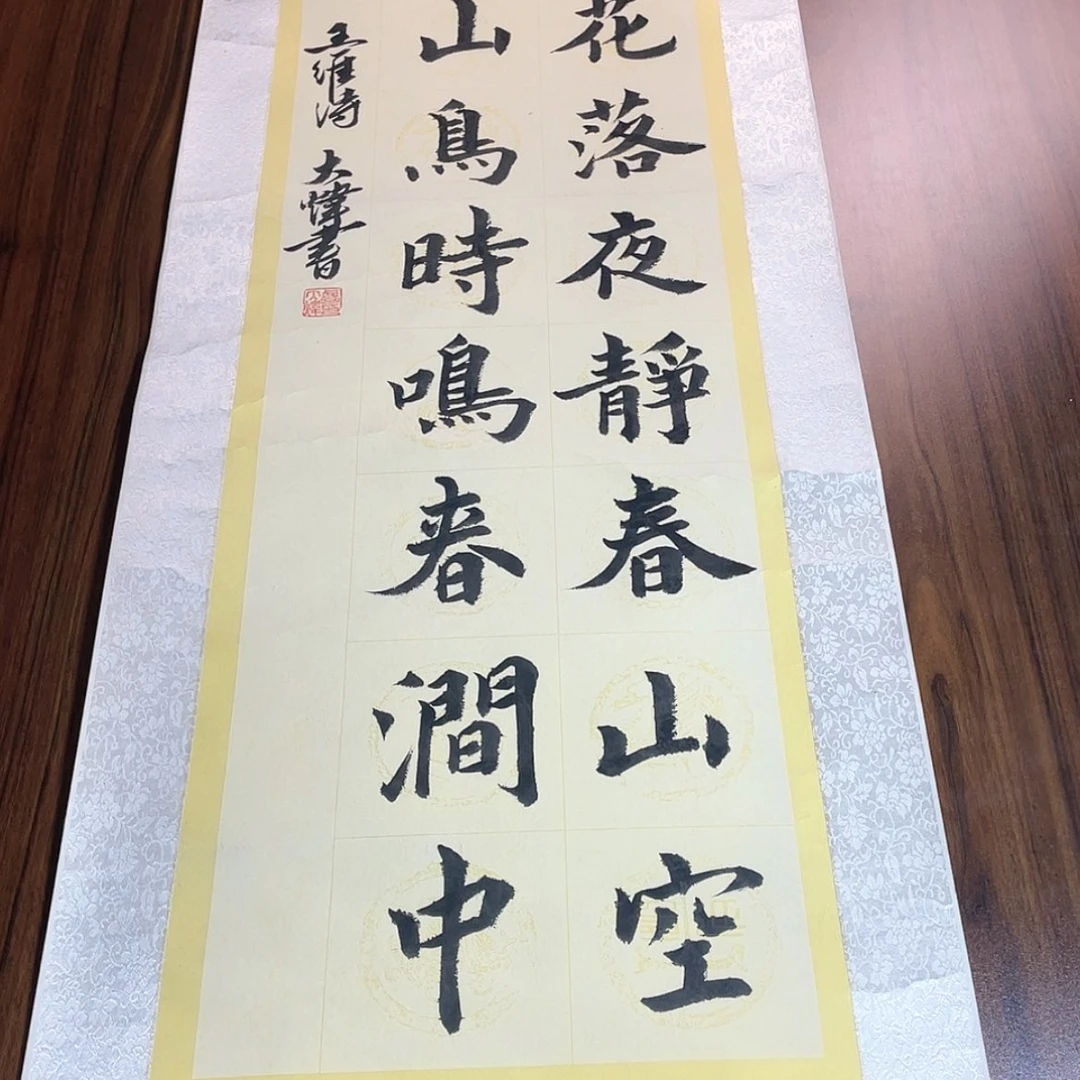 花落夜靜春山空
山鳥時鳴春澗中
王維詩 大煒書